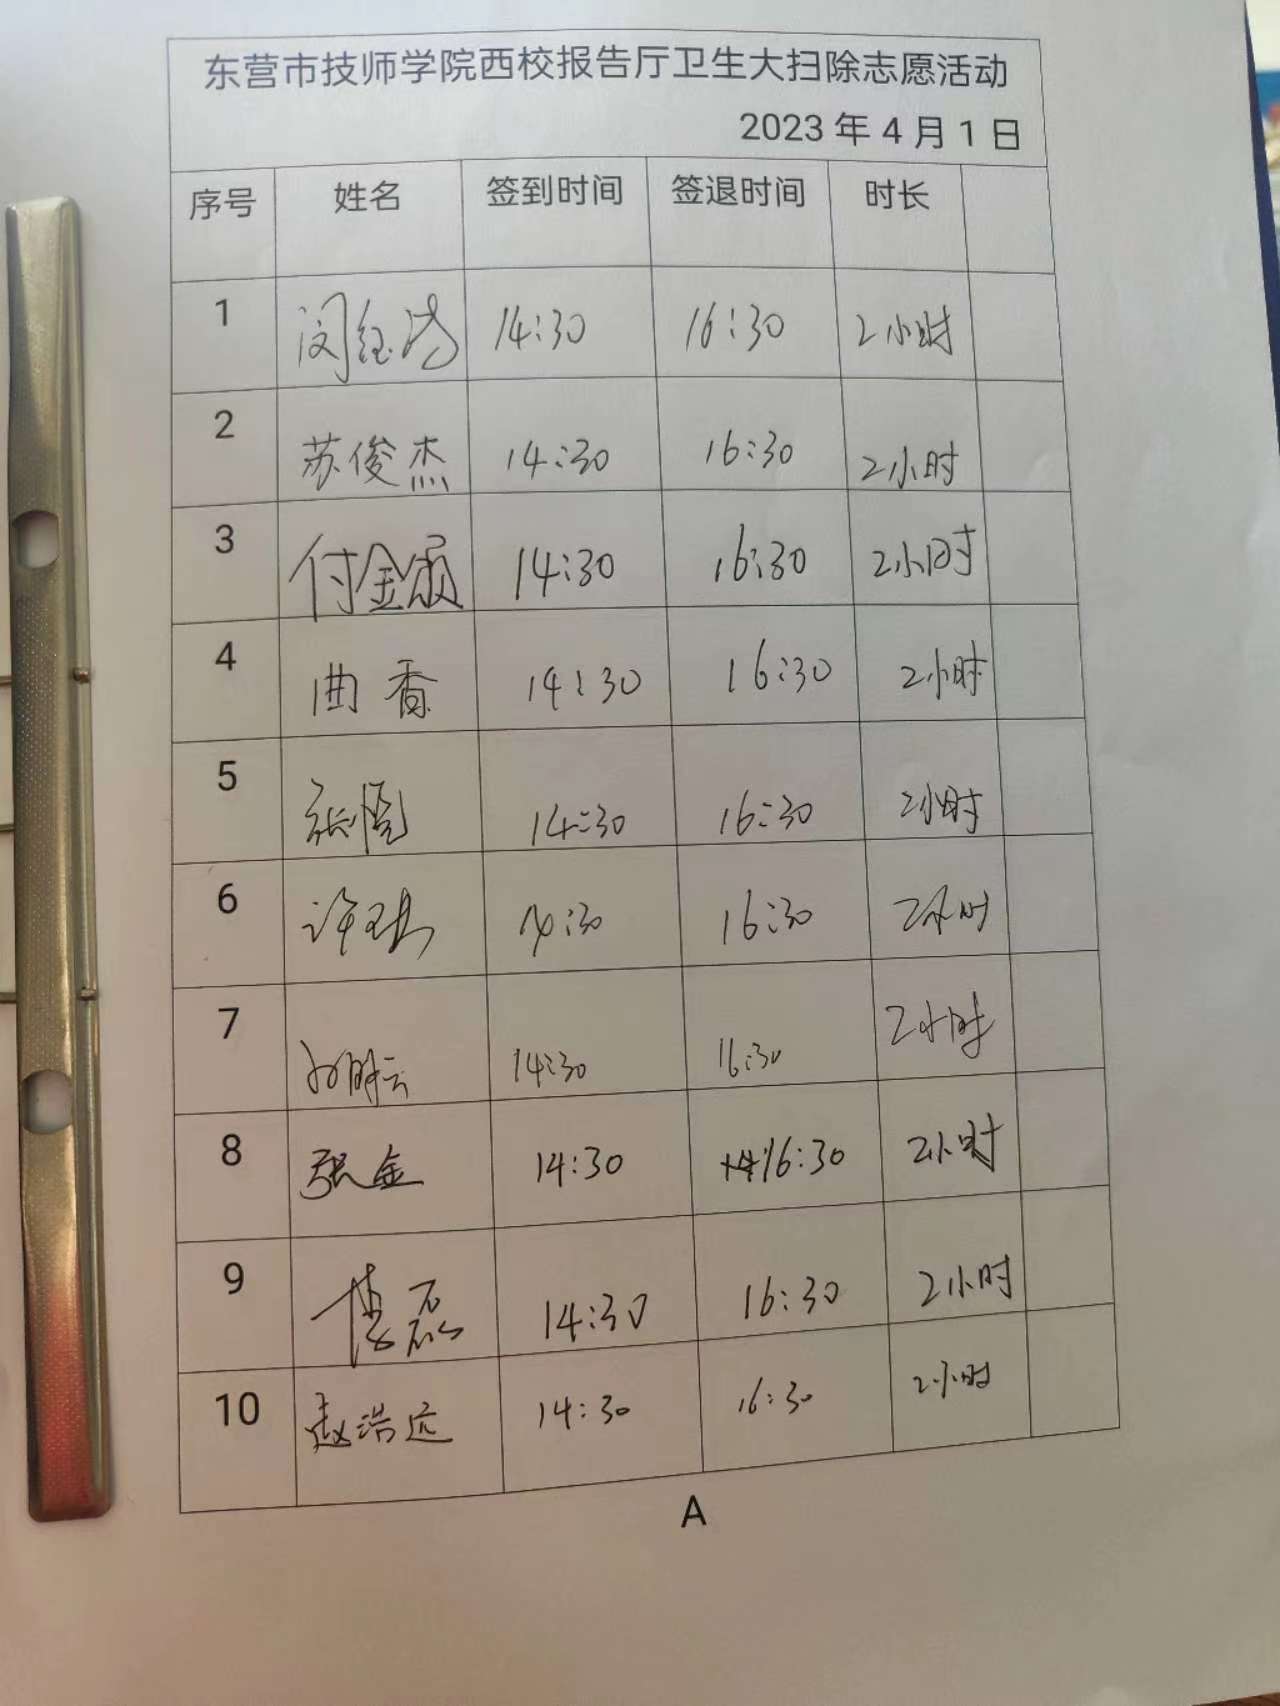 东营市技师学院西校报告厅卫生大扫除志愿活动
2023年4月1日
序号 姓名 签到时间 签退时间 时长
1 闵钰涛 14:30 16:30 2小时
2 苏俊杰 14:30 16:30 2小时
3 付金 14:30 16:30 2小时
4 曲香 14:30 16:30 2小时
5 张 14:30 16:30 2小时
6 许 14:30 16:30 2小时
7 14:30 16:30 2小时
8 张金 14:30 16:30 2小时
9 磊 14:30 16:30 2小时
10 赵浩远 14:30 16:30 2小时
A